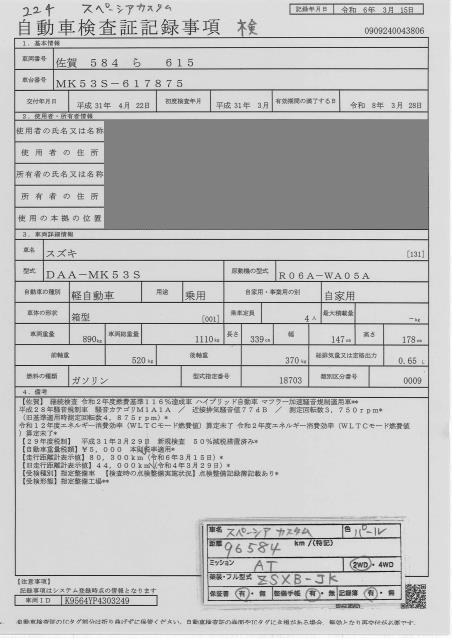 224 スペーシアカスタム
記録年月日 令和 6年 3月 15日
自動車検査証記録事項 検
0909240043806
1. 基本情報
車両番号 佐賀 584 ら 615
車台番号 MK53S-617875
交付年月日 平成31年 4月 22日 初度検査年月 平成31年 3月 有効期間の満了する日 令和 8年 3月 28日
2. 使用者・所有者情報
使用者の氏名又は名称
使用者の住所
所有者の氏名又は名称
所有者の住所
使用の本拠の位置
3. 車両詳細情報
車名 スズキ [131]
型式 DAA-MK53S 原動機の型式 R06A-WA05A
自動車の種別 軽自動車 用途 乗用 自家用・事業用の別 自家用
車体の形状 箱型 [001] 乗車定員 4人 最大積載量 -kg
車両重量 890kg 車両総重量 1110kg 長さ 339cm 幅 147cm 高さ 178cm
前軸重 520kg 後軸重 370kg 総排気量又は定格出力 0.65 L
燃料の種類 ガソリン 型式指定番号 18703 類別区分番号 0009
4. 備考
【佐賀】 継続検査 令和2年度燃費基準116%達成車 ハイブリッド自動車 マフラー加速騒音規制適用車**
平成28年騒音規制車 騒音カテゴリM1A1A / 近接排気騒音値77dB / 測定回転数3,750rpm**
(旧基準適用時測定回転数4,875rpm)*
令和12年度エネルギー消費効率(WLTCモード燃費値)算定未了 令和2年度エネルギー消費効率(WLTCモード燃費値)算定未了*
【29年度税制】 平成31年3月29日 新規検査 50%減税措置済み*
【自動車重量税額】¥5,000 本則税率適用*
【走行距離計表示値】80,300km(令和6年3月15日)*
【旧走行距離計表示値】44,000km(令和4年3月29日)*
【受検種別】指定整備車 【検査時の点検整備実施状況】点検整備記録簿記載あり*
【受検形態】指定整備工場**
車名 スペーシアカスタム 色 パール
距離 96584 km/(特記)
ミッション AT 2WD・4WD
架装・フル型式 ZSXB-JK
保証書 有・無 整備手帳 有・無 記録簿 有・無
【注意事項】
記載事項はシステム登録時点の情報となります
車両ID K9564YP4303249